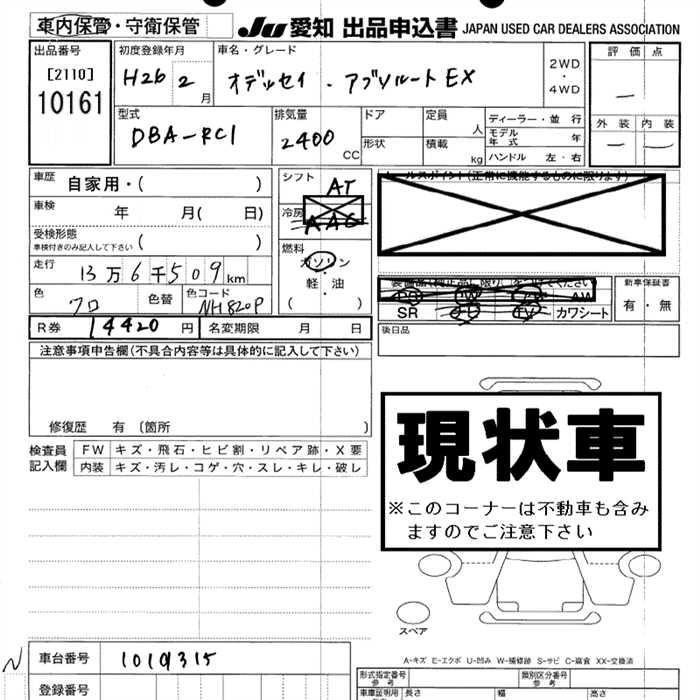 車内保管・守衛保管 JU 愛知 出品申込書 JAPAN USED CAR DEALERS ASSOCIATION
出品番号 [2110] 10161
初度登録年月 H26 2月
車名・グレード オデッセイ・アブソルートEX
2WD・4WD
評価点 —
外装 — 内装 —
型式 DBA-RC1
排気量 2400 CC
ドア 形状
定員 人
積載 kg
ディーラー・並行
モデル年式 年
ハンドル 左・右
車歴 自家用・( )
シフト AT
車検 年 月( 日)
冷房 AAC
受検形態 車検付きのみ記入して下さい ( )
燃料 ガソリン・軽油・( )
走行 13万6千509km
色 クロ 色替 色コード NH820P
R券 14420円 名変期限 月 日
セールスポイント(正常に機能するものに限ります)
装備品(純正品に限り○をつけてください)
PS PW AW
SR TV カワシート
新車保証書 有・無
後日品
注意事項申告欄(不具合内容等は具体的に記入して下さい)
修復歴 有 〔箇所 〕
検査員記入欄
FW キズ・飛石・ヒビ割・リペア跡・X要
内装 キズ・汚レ・コゲ・穴・スレ・キレ・破レ
現状車
※このコーナーは不動車も含み
ますのでご注意下さい
スペア
A-キズ E-エクボ U-凹み W-補修跡 S-サビ C-腐食 XX-交換済
N 車台番号 1019315
登録番号
形式指定番号 参考
類別区分番号 参考
車庫証明用 長さ 幅 高さ